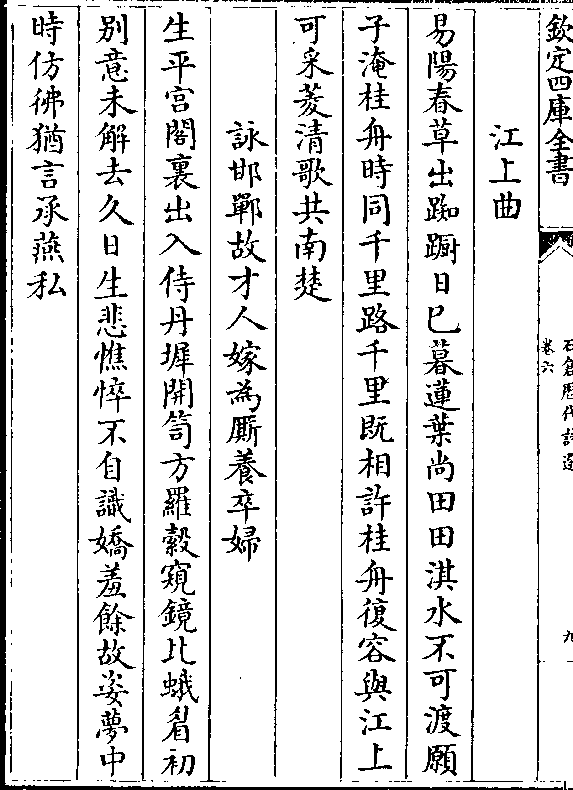 欽定四庫全書
石倉歷代詩選
卷六
九
江上曲
易陽春草出踟躕日已暮蓮葉尚田田淇水不可渡願
子淹桂舟時同千里路千里既相許桂舟復容與江上
可采菱清歌共南楚
詠邯鄲故才人嫁為厮養卒婦
生平宫閣裏出入侍丹墀開笥方羅縠窺鏡比蛾眉初
别意未解去久日生悲憔悴不自識嬌羞餘故姿夢中
時仿彿猶言承燕私